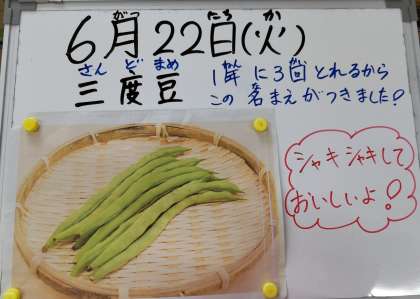 6月22日(火)
三度豆
1年に3回とれるから
この名まえがつきました!
シャキシャキして
おいしいよ!